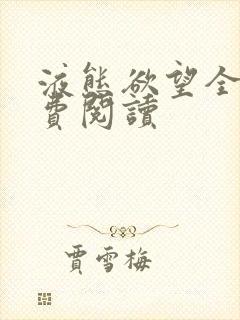 液態欲望全
費閱讀
賈雪梅